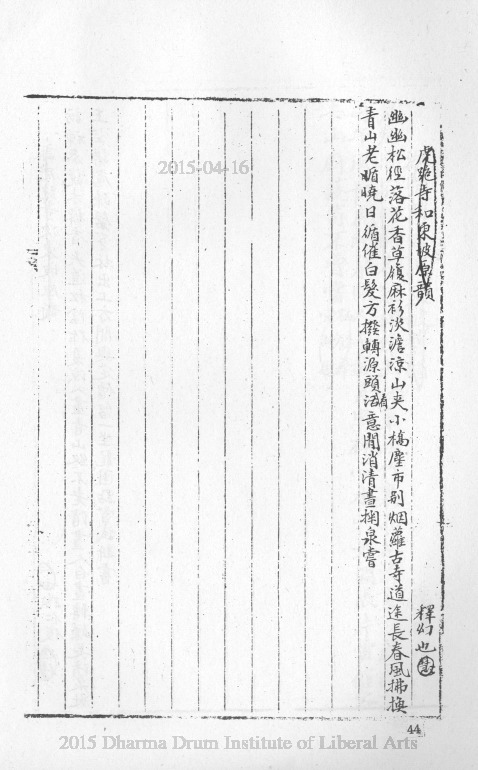 虎跑寺和東坡原韻
釋幻也
幽幽松徑落花香草履麻衫淡澹涼山夾小橋塵市别烟蘿古寺道途長春風拂換
青山老暗曉日循催白髮方撥轉源頭活意閒消清晝掬泉嘗
2015-04-16
44
2015 Dharma Drum Institute of Liberal Arts